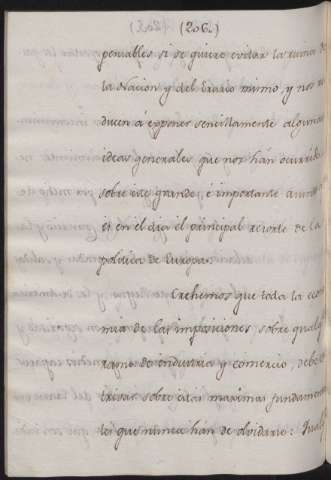 (206.)
pensables si se quiere evitar la ruina de
la Nacion y del Erario mismo, y nos re
ducen á exponer sencillamente algunas
ideas generales que nos hán ocurrido
sobre este grande, é importante asunto
es en el dia el principal resorte de la
politica de Europa.
Crehemos que toda la econo
mia de las imposiciones, sobre qualq
ramo de industria y comercio, debe es
trivar sobre estas maximas fundament
les que nunca hán de olvidarse: